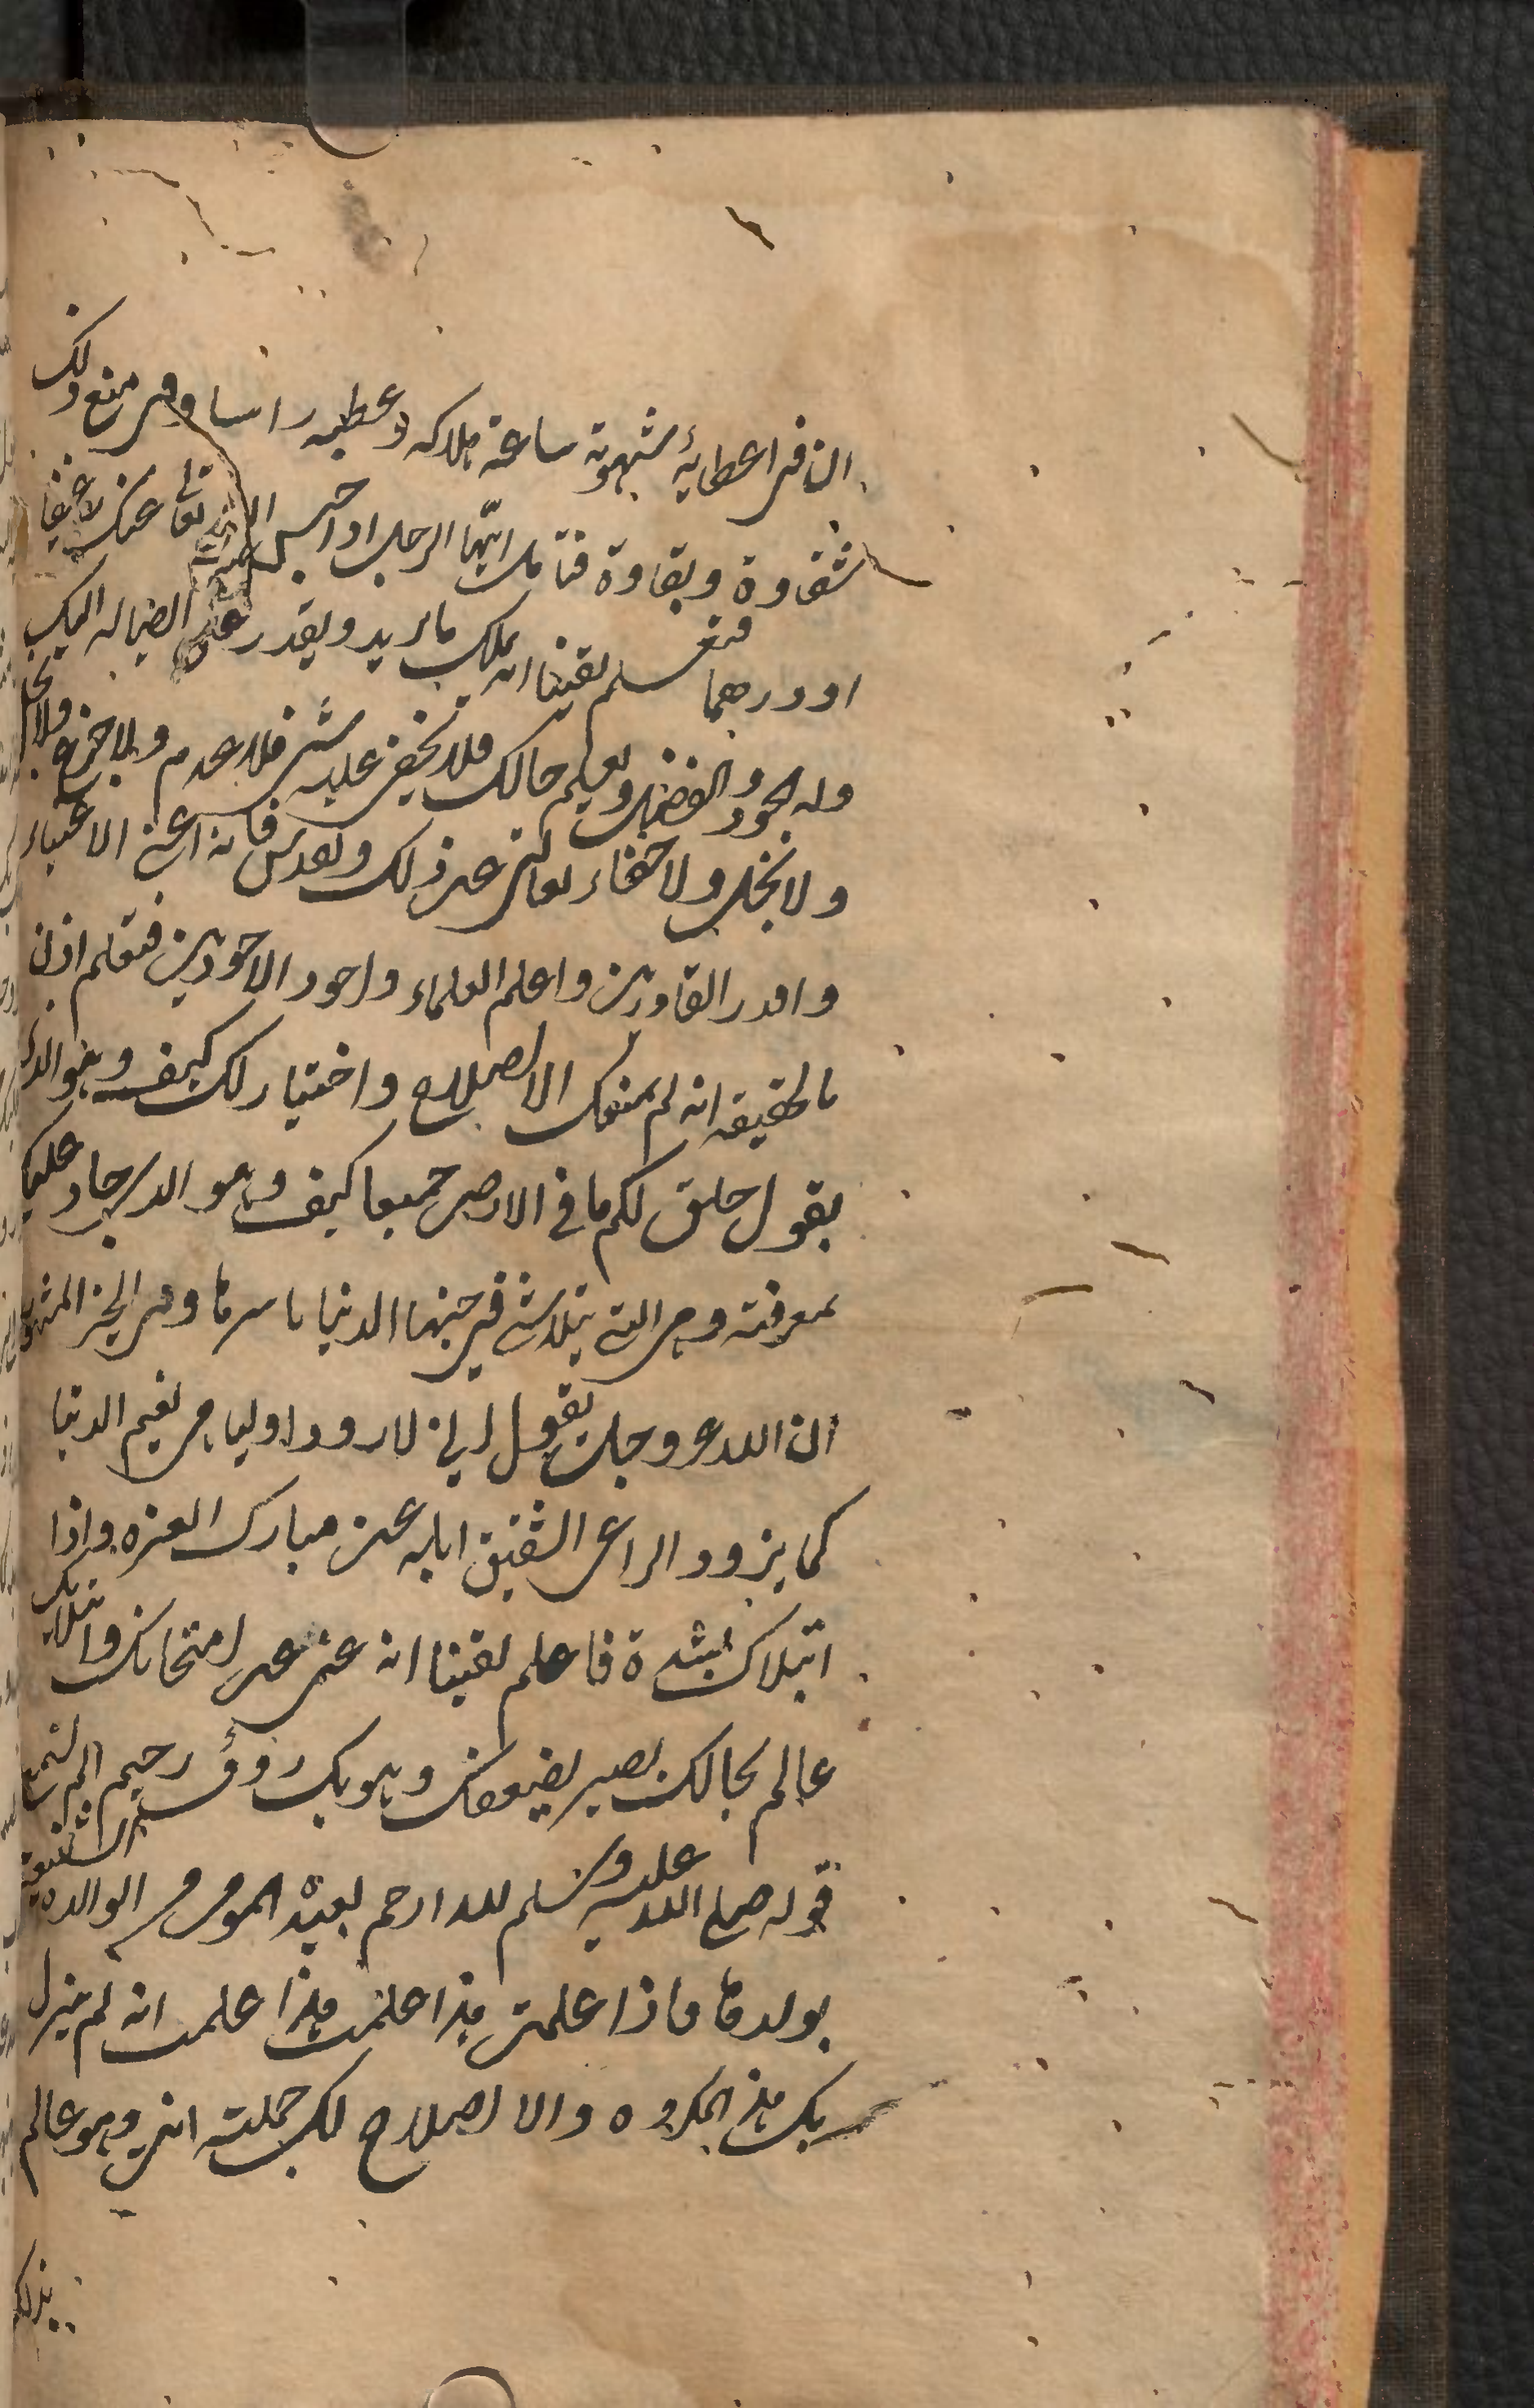 ان في اعطايه شهوته ساعة هلاكه وعطبه راسا وفي منع ذلك
شفاوة وبقاوة فتامل ايّها الرجل اذا حبس الله تعالى عنك رغيفا
او درهما فتعلم يقينا انه يملك ما يريد ويقدر على ايصاله اليك
وله الجود والفضل ويعلم حالك فلا يخفى عليه شئ فلا عدم ولا عجز ولا
ولا بخل ولا خفاء تعالى عن ذلك وتقدس فانه اغنى الاغنياء
واقدر القادرين واعلم العلماء واجود الاجودين فتعلم اذن
بالحقيقه انه لم يمنعك الا لصلاح واختيار لك كيف وهو الذى
يقول خلق لكم ما في الارض جميعا كيف وهو الذى جاد عليك
بمعرفته وهي التي يتلاشى في جنبها الدنيا باسرها وفي الخبر المشهور
ان الله عز وجل يقول اني لاذود اوليا عن نعيم الدنيا
كما يذود الراعي الشفيق ابله عن مبارك العره واذا
ابتلاك بشدة فاعلم يقينا انه غني عن امتحانك وابتلايك
عالم بحالك بصير بضعفك وهو بك رؤف رحيم اما تسمع
قوله صلى الله عليه وسلم لله ارحم بعبده المومن من الوالدة الشفيقة
بولدها فاذا علمت هذا علمت انه لم ينزل
بك هذا المكروه الا لصلاح لك جهلته انت وهو عالم
بذلك